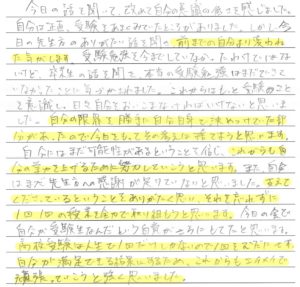 今日の話を聞いて、改めて自分の意識の低さを感じました。
自分は正直、受験をあまくみていたところがありました。しかし今
日の先生方のありがたい話を聞き前までの自分より変われ
た気がします。受験勉強を今までしていなかったわけではな
いけど、卒業生の話を聞いて、本当の受験勉強はまだできて
いなかったことに気づかされました。これからはもっと受験のこと
を意識し、日々自分をおいこまなければいけないと思いま
した。自分の限界を勝手に自分自身で決めつけていた部
分があったので今日をもってその考えは捨てようと思います。
自分にはまだ可能性があるということを信じ、これからも自
分の学力を上げるために努力していこうと思います。また、自分
はまだ先生方への感謝が足りていないと思いました。支えて
くださっているということをありがたく思い、それを忘れずに
1回1回の授業を全力で取り組もうと思います。今日の会で
自分が受験生なんだという自覚がさらにでてきたと思います。
高校受験は人生で1回だけしかないので1回をむだにせず、
自分が満足できる結果にするため、これからもコツコツで
頑張っていこうと強く思いました。